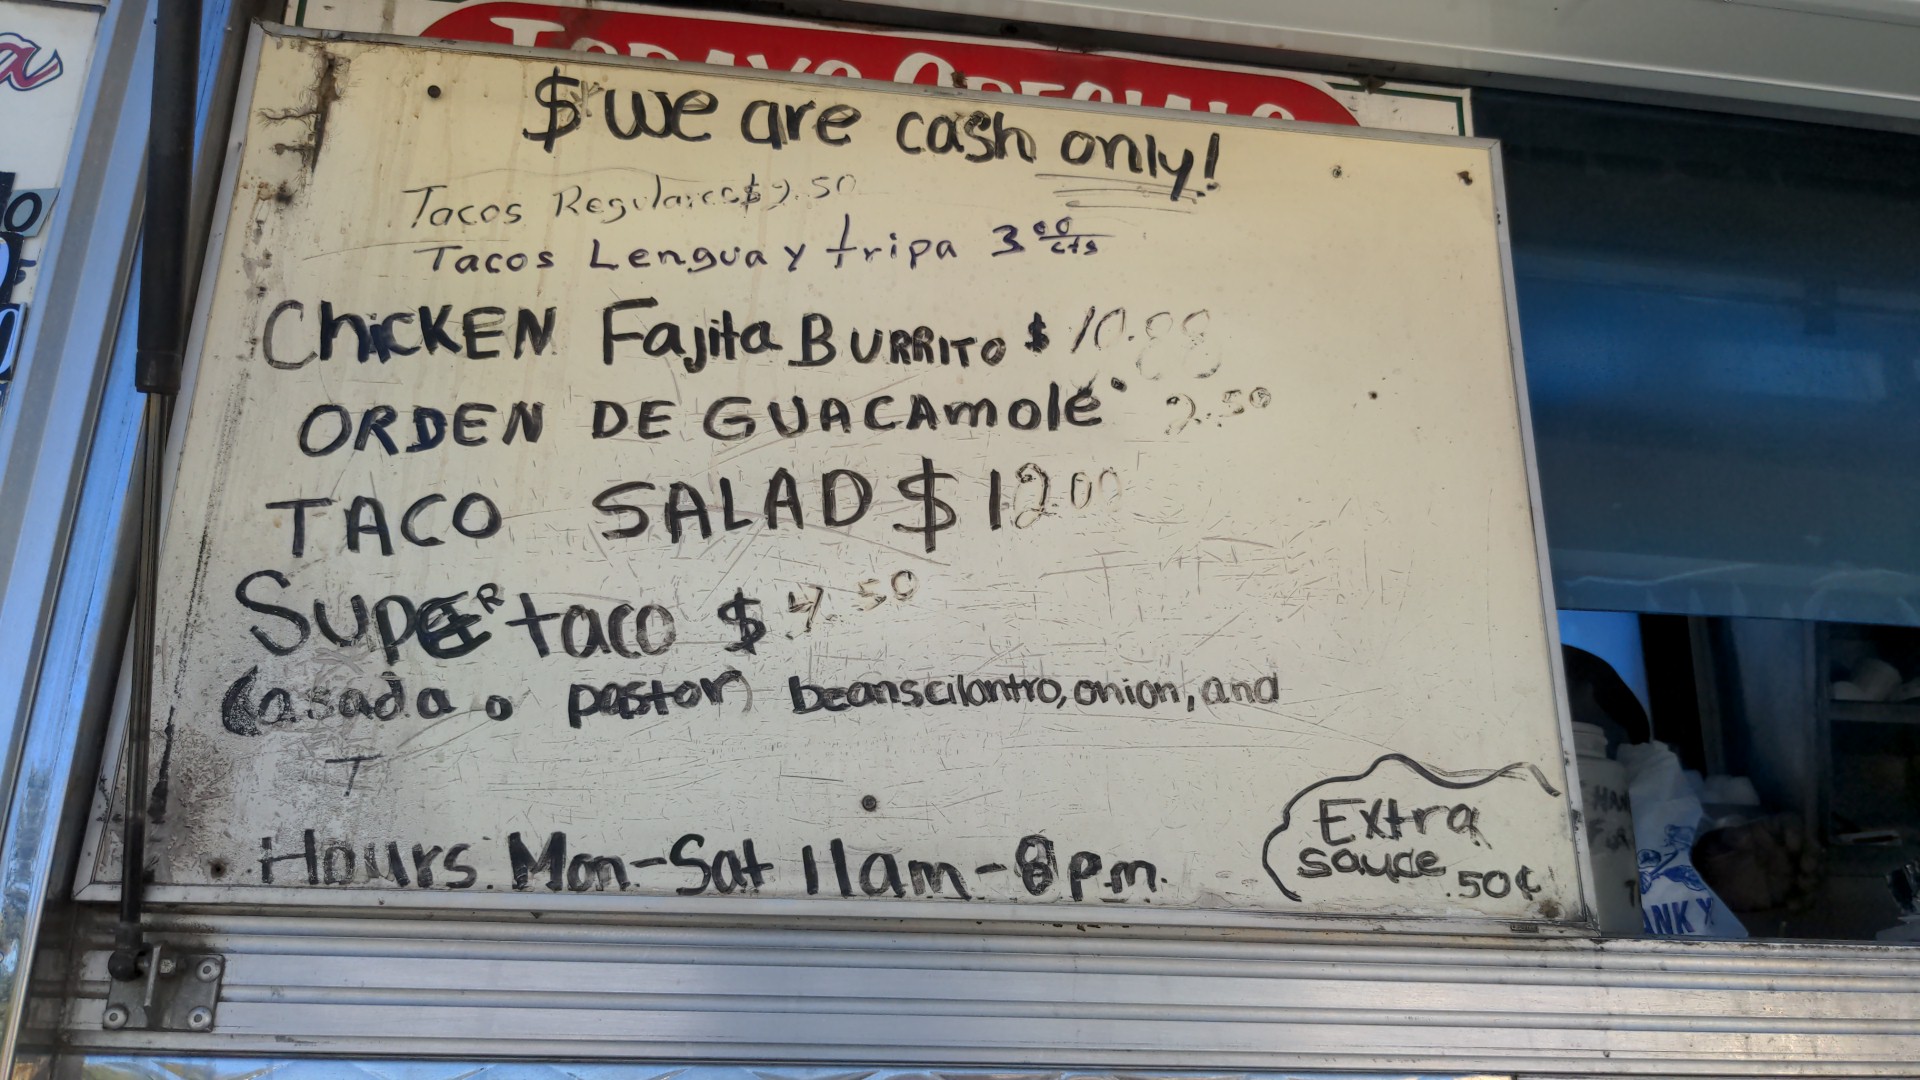 TODAYS SPECIALS
$ we are cash only!
Tacos Regulares $2.50
Tacos Lengua y tripa 3 00 cts
CHicKEN Fajita BURRITO $ 10.
ORDEN DE GUACAmolé 2.50
TACO SALAD $ 12 00
SupER taco $ 4.50
(asada o pastor) beans cilantro, onion, and
T
Hours: Mon-Sat 11am-8pm.
Extra
sauce .50¢